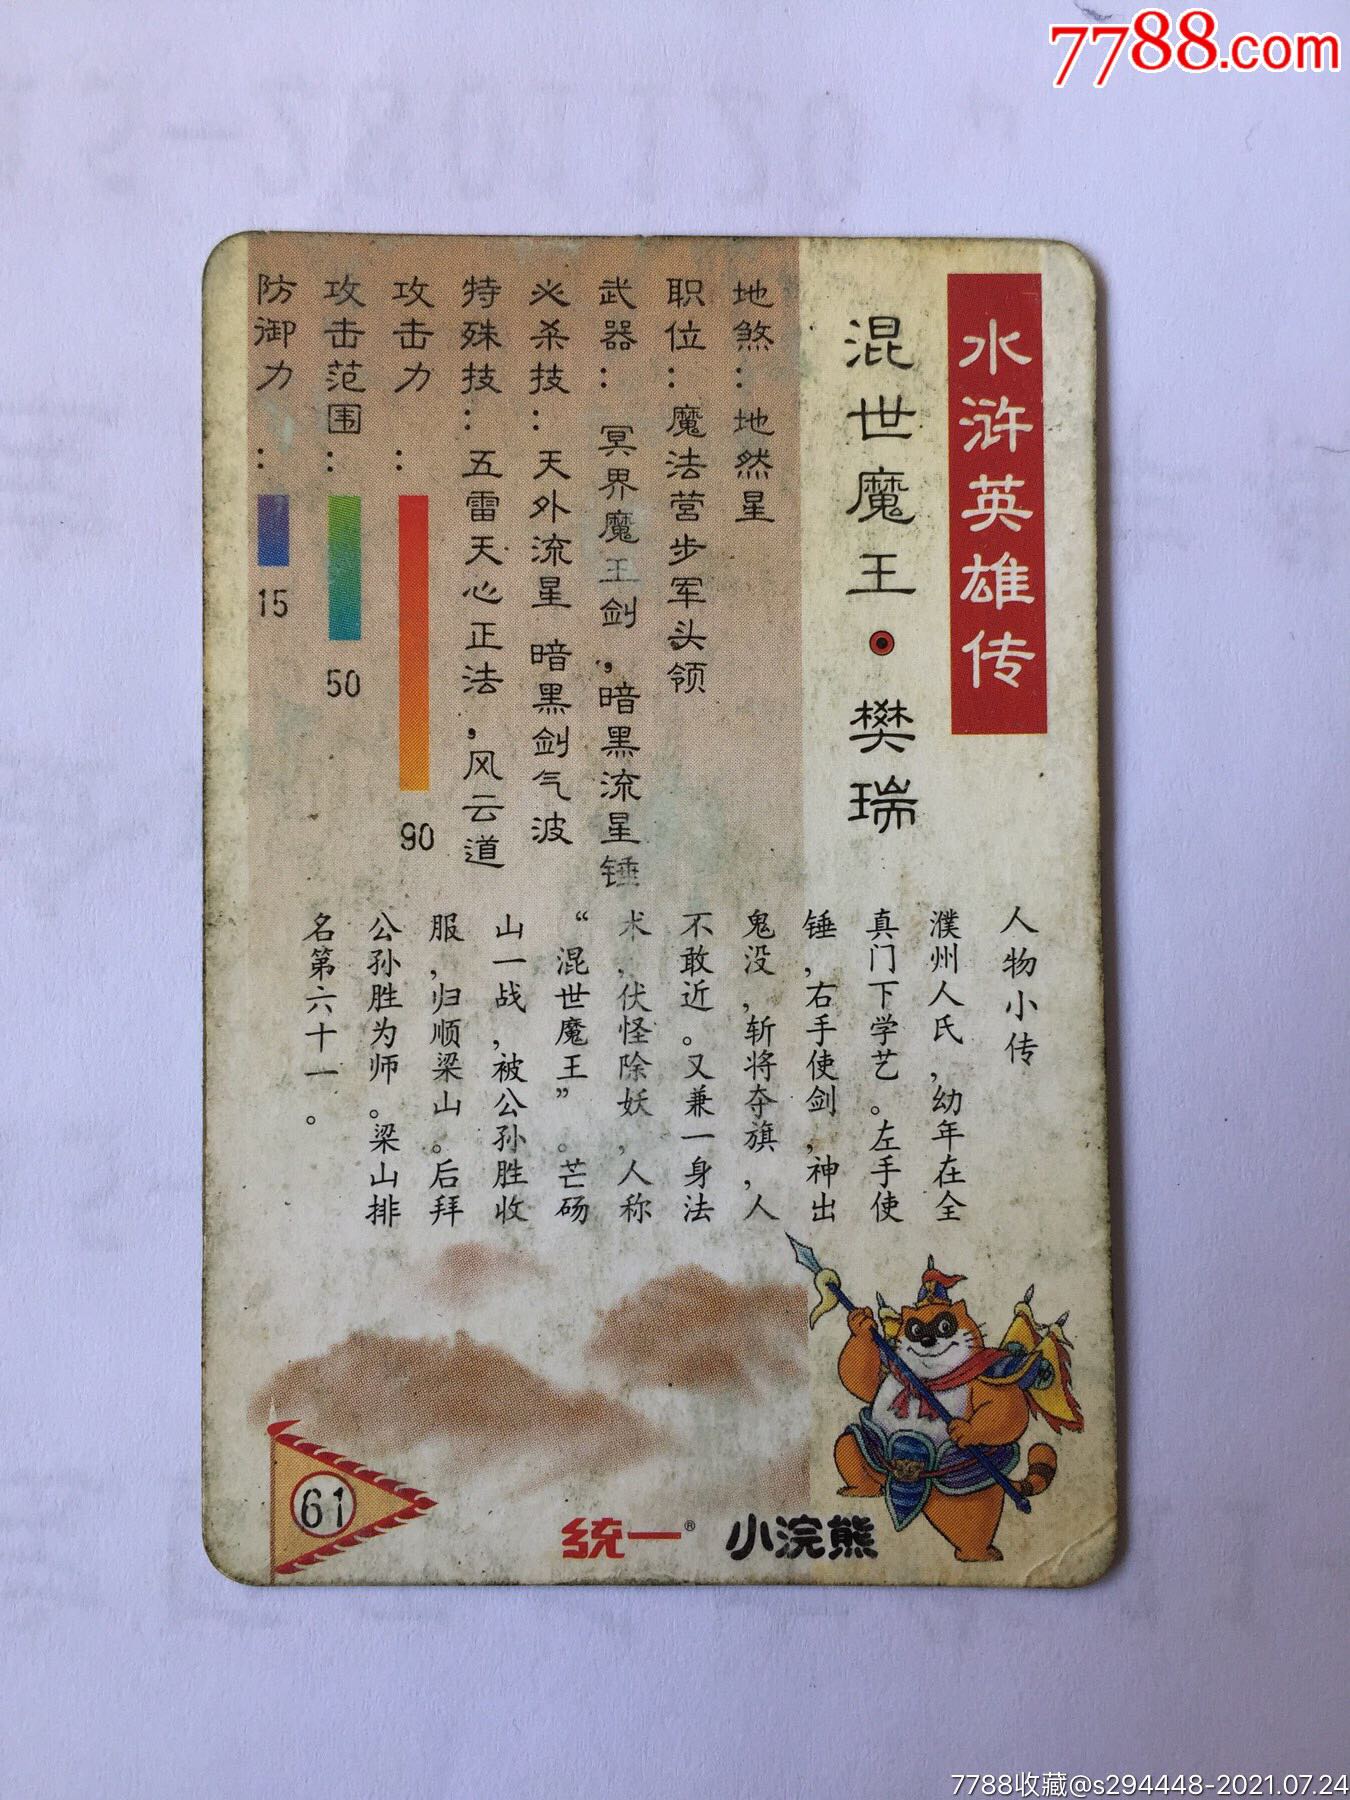 7788.com
水浒英雄传
混世魔王·樊瑞
地煞：地然星
职位：魔法营步军头领
武器：冥界魔王剑，暗黑流星锤
必杀技：天外流星 暗黑剑气波
特殊技：五雷天心正法，风云道
攻击力：
90
攻击范围：
50
防御力：
15
人物小传
濮州人氏，幼年在全
真门下学艺。左手使
锤，右手使剑，神出
鬼没，斩将夺旗，人
不敢近。又兼一身法
术，伏怪除妖，人称
“混世魔王”。芒砀
山一战，被公孙胜收
服，归顺梁山。后拜
公孙胜为师。梁山排
名第六十一。
61
統一® 小浣熊
7788收藏@s294448-2021.07.24